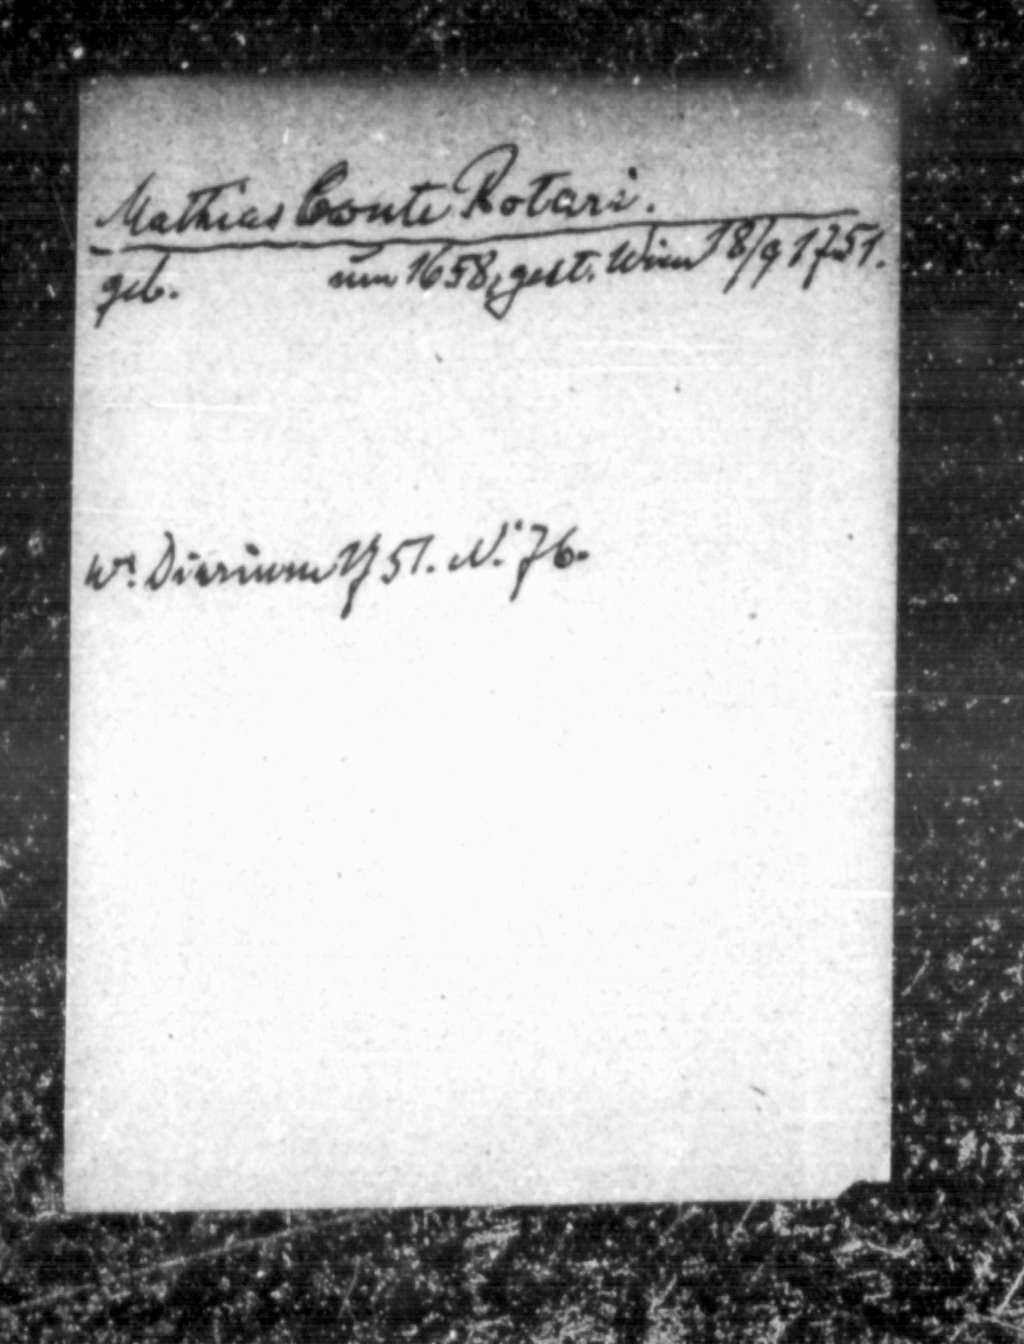 Mathias Conte Rotari.
geb. um 1658, gest. Wien 18/9 1751.
Wr. Diarium 1751. N. 76.